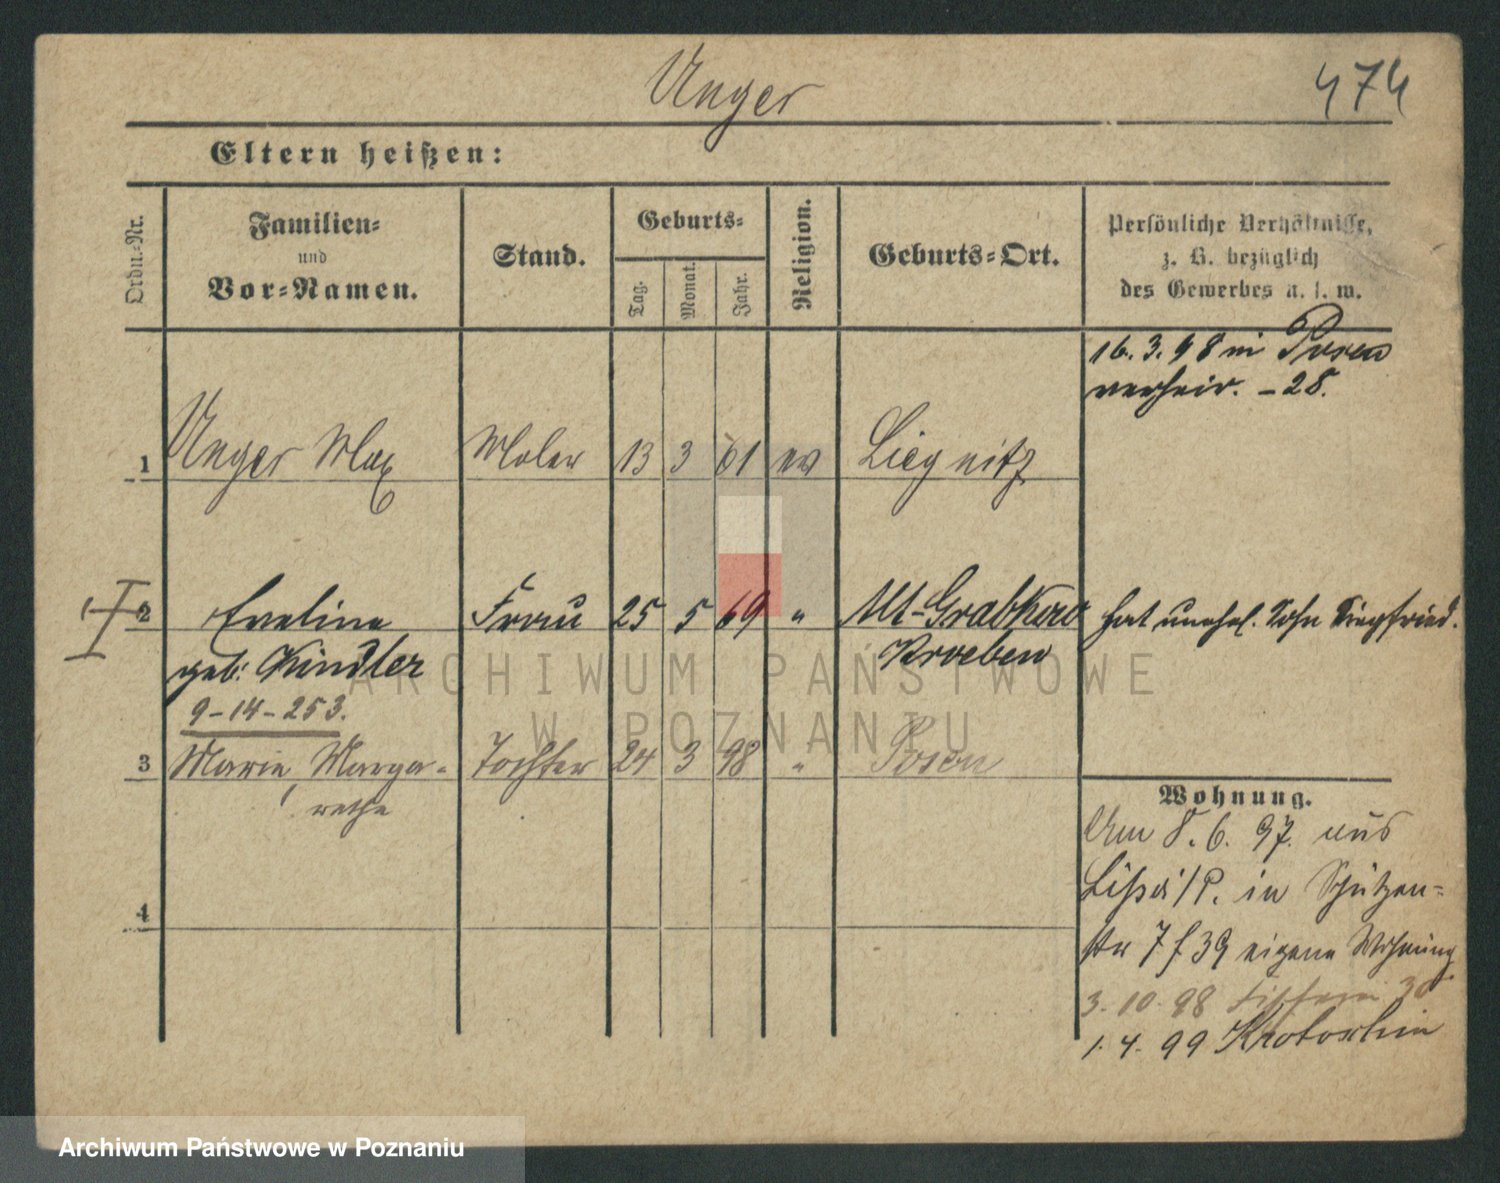 Unger
474
Eltern heißen:
Ordn.-Nr.
Familien-
und
Vor-Namen.
Stand.
Geburts-
Tag.
Monat.
Jahr.
Religion.
Geburts-Ort.
Persönliche Verhältnisse,
z. B. bezüglich
des Gewerbes u. s. w.
16.3.98 in Posen
verheir. - 28.
1 Unger Max Maler 13 3 61 ev Liegnitz
2 Eveline Frau 25 5 69 " Alt-Grabkowo hat unehel. Sohn Siegfried.
geb: Kindler Kroeben
9-14-253.
3 Marie, Marga- Tochter 24 3 98 " Posen
rethe
Wohnung.
Am 8.6.97. aus
Lissa/P. in Schützen-
str 7 f 39 eigene Wohnung
4
3.10.98 30
1.4.99 Krotoschin
ARCHIWUM PAŃSTWOWE
W POZNANIU
Archiwum Państwowe w Poznaniu